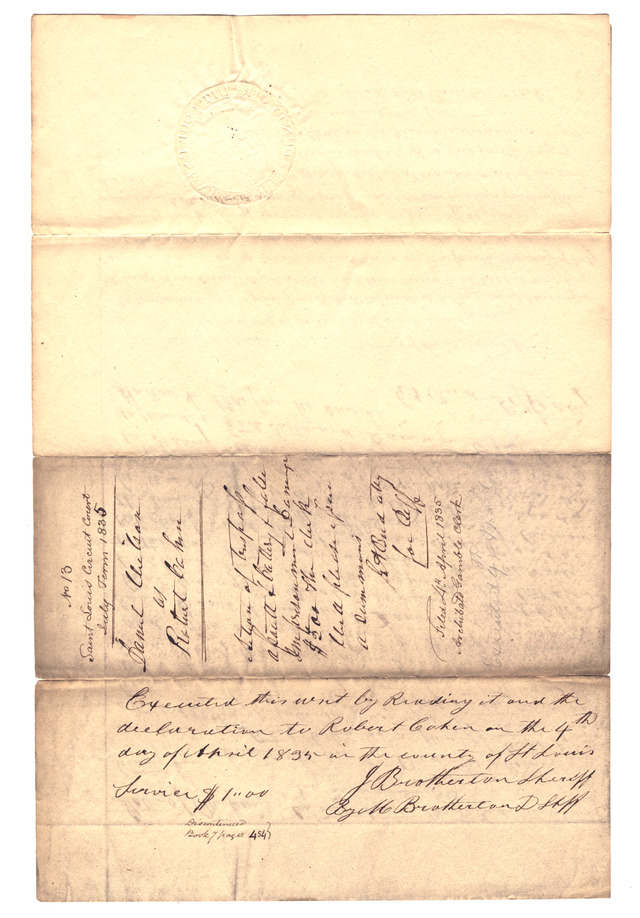 No 13
Saint Louis Circuit Court
July Term 1835
Daniel
vs
Robert Cohen
Action of trespass
assault & Battery & false
Imprisonment Damage
$500 The clerk
will please issue
a summons
for Plff
Filed 4th April 1835
Archibald Gamble Clerk
Executed this writ by Reading it and the
declaration to Robert Cohen on the 4th
day of April 1835 in the county of St Louis
Service $1.00
J Brotherton Sheriff
By M Brotherton D Shff
Discontinued
Book 7 page 484